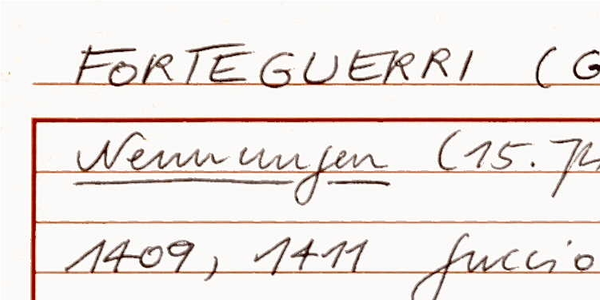 FORTEGUERRI (G
Nennungen (15. Jh
1409, 1411 Guccio